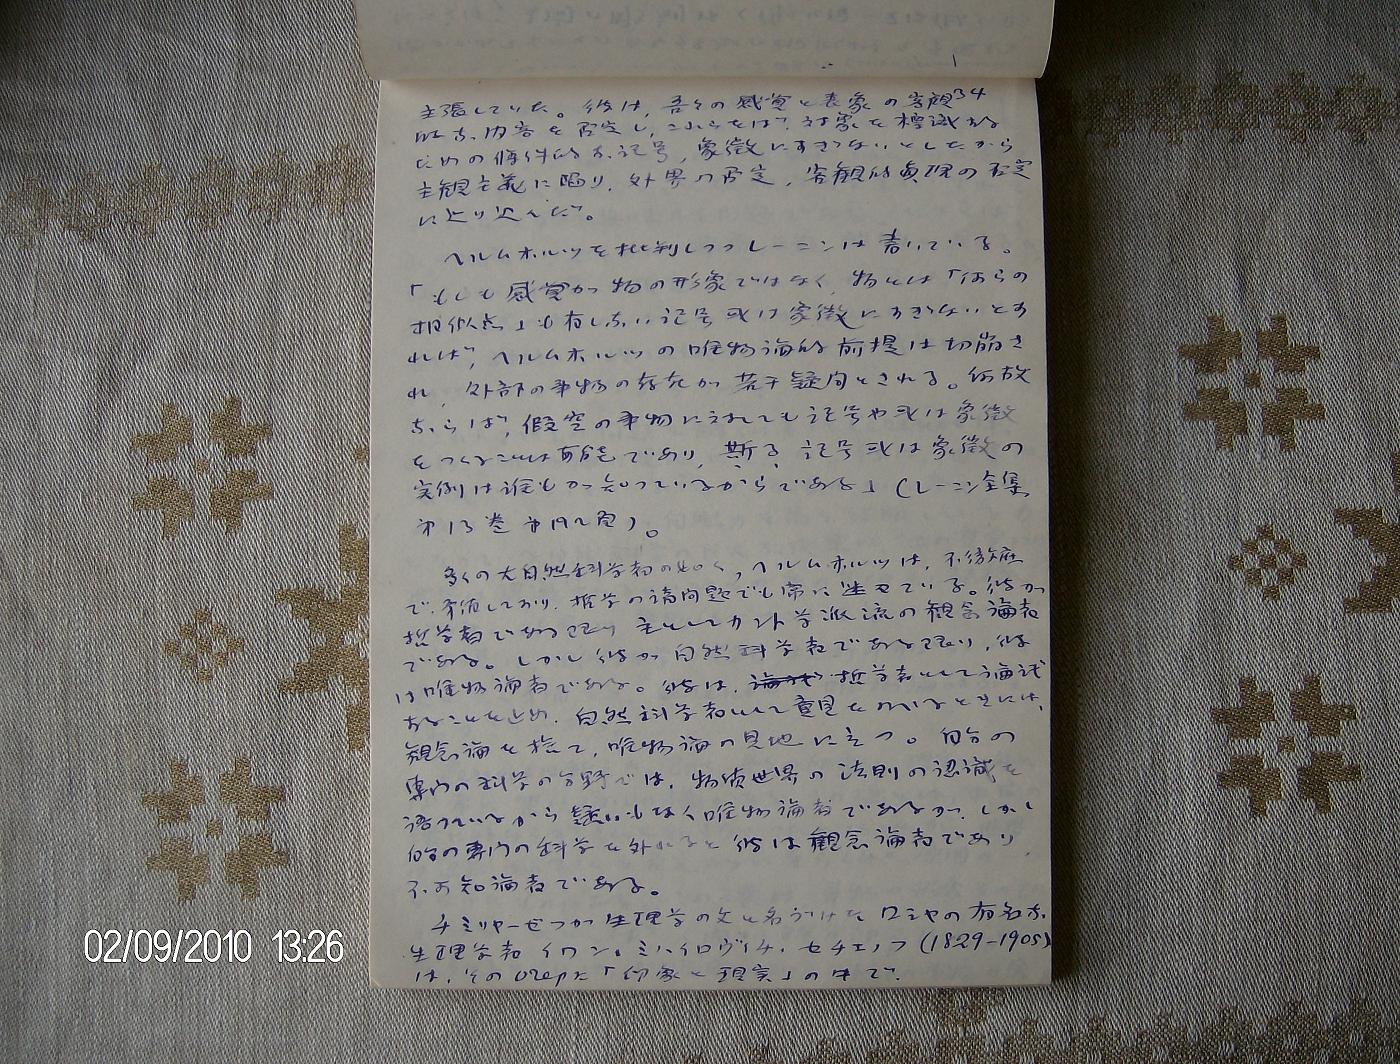 34
主張していた。彼は、吾々の感覚と表象の客観
的な内容を否定し、これらをば、対象を標識する
ための條件的な記号、象徴にすぎないとしたから
主観主義に陥り、外界の否定、客観的真理の否定
に辷り込んだ。
ヘルムホルツを批判しつつレーニンは書いている。
「もしも感覚が物の形象ではなく、物とは「何らの
相似点」も有しない記号或は象徴にすぎないとす
れば、ヘルムホルツの唯物論的前提は切崩さ
れ、外部の事物の存在が若干疑問とされる。何故
ならば、假空の事物に対しても記号や或は象徴
をつくることは可能であり、斯る記号或は象徴の
実例は誰もが知っているからである」（レーニン全集
第13巻第192頁）。
多くの大自然科学者の如く、ヘルムホルツは、不徹底
で、矛盾しており、哲学の諸問題でも常に迷っている。彼が
哲学者である限り主としてカント学派流の観念論者
である。しかし彼が自然科学者である限り、彼
は唯物論者である。彼は、哲学者として論試
することを止め、自然科学者として意見をのべるときには、
観念論を捨て、唯物論の見地に立つ。自分の
専門の科学の分野では、物質世界の法則の認識を
語っているから疑いもなく唯物論者であるが、しかし
自分の専門の科学を外れると彼は観念論者であり、
不可知論者である。
チミリヤーゼフが生理学の父と名づけたロシヤの有名な
生理学者イワン・ミハイロヴィチ・セチェノフ（1829-1905）
は、その「印象と現実」の中で、
02/09/2010 13:26